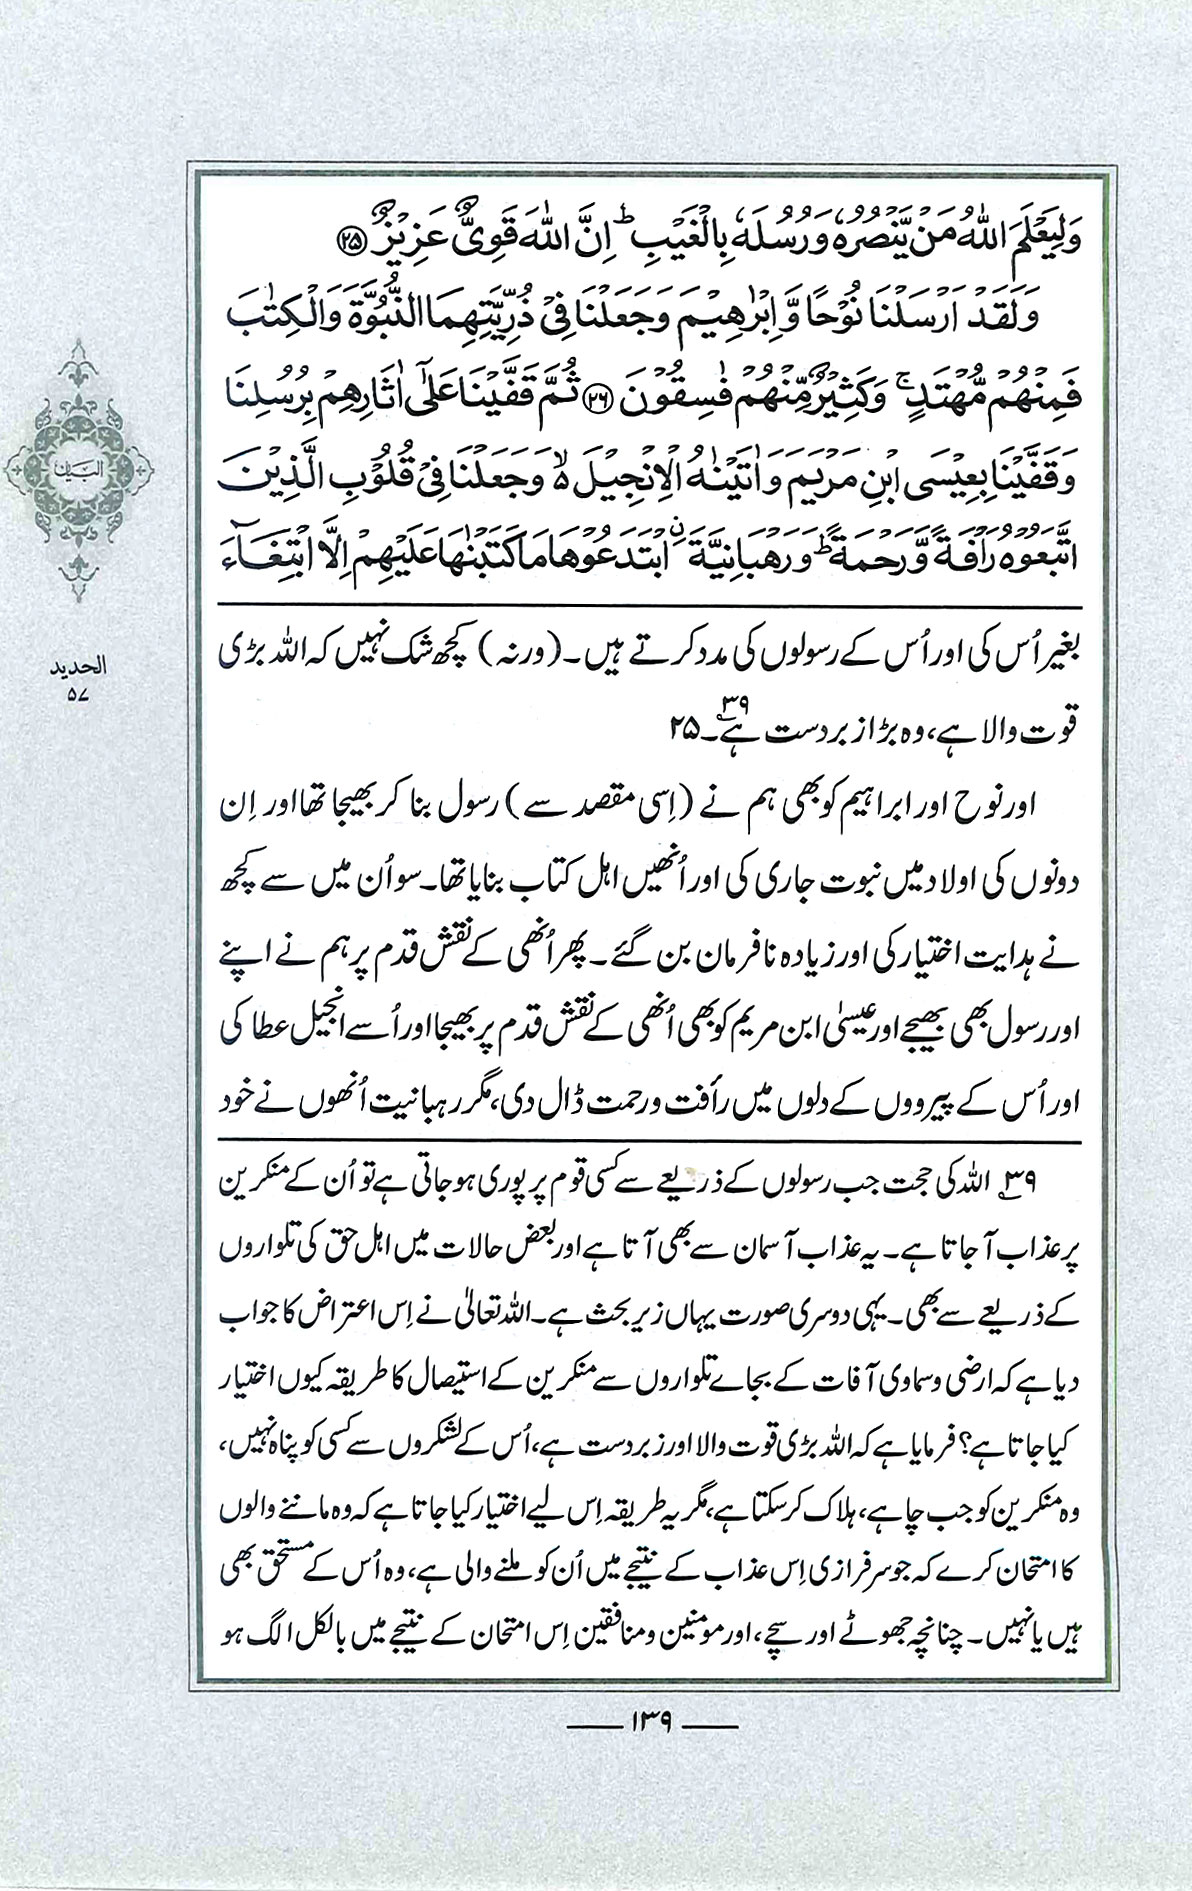 وَلِيَعْلَمَ اللّٰهُ مَنْ يَّنْصُرُهٗ وَرُسُلَهٗ بِالْغَيْبِ ؕ اِنَّ اللّٰهَ قَوِيٌّ عَزِيْزٌ ﴿۲۵﴾
وَلَقَدْ اَرْسَلْنَا نُوْحًا وَّاِبْرٰهِيْمَ وَجَعَلْنَا فِيْ ذُرِّيَّتِهِمَا النُّبُوَّةَ وَالْكِتٰبَ
فَمِنْهُمْ مُّهْتَدٍ ۚ وَكَثِيْرٌ مِّنْهُمْ فٰسِقُوْنَ ﴿۲۶﴾ ثُمَّ قَفَّيْنَا عَلٰٓي اٰثَارِهِمْ بِرُسُلِنَا
وَقَفَّيْنَا بِعِيْسَى ابْنِ مَرْيَمَ وَاٰتَيْنٰهُ الْاِنْجِيْلَ ۙ۬ وَجَعَلْنَا فِيْ قُلُوْبِ الَّذِيْنَ
اتَّبَعُوْهُ رَاْفَةً وَّرَحْمَةً ؕ وَرَهْبَانِيَّةَ ۨ ابْتَدَعُوْهَا مَا كَتَبْنٰهَا عَلَيْهِمْ اِلَّا ابْتِغَآءَ
بغیر اُس کی اور اُس کے رسولوں کی مدد کرتے ہیں۔ (ورنہ) کچھ شک نہیں کہ اللہ بڑی
قوت والا ہے، وہ بڑا زبردست ہے۔۳۹ ۲۵
اور نوح اور ابراہیم کو بھی ہم نے (اِسی مقصد سے) رسول بنا کر بھیجا تھا اور اِن
دونوں کی اولاد میں نبوت جاری کی اور اُنھیں اہل کتاب بنایا تھا۔ سو اُن میں سے کچھ
نے ہدایت اختیار کی اور زیادہ نافرمان بن گئے۔ پھر اُنھی کے نقش قدم پر ہم نے اپنے
اور رسول بھی بھیجے اور عیسیٰ ابن مریم کو بھی اُنھی کے نقش قدم پر بھیجا اور اُسے انجیل عطا کی
اور اُس کے پیرووں کے دلوں میں رأفت و رحمت ڈال دی، مگر رہبانیت اُنھوں نے خود
۳۹؎ اللہ کی حجت جب رسولوں کے ذریعے سے کسی قوم پر پوری ہو جاتی ہے تو اُن کے منکرین
پر عذاب آجاتا ہے۔ یہ عذاب آسمان سے بھی آتا ہے اور بعض حالات میں اہل حق کی تلواروں
کے ذریعے سے بھی۔ یہی دوسری صورت یہاں زیر بحث ہے۔ اللہ تعالیٰ نے اِس اعتراض کا جواب
دیا ہے کہ ارضی و سماوی آفات کے بجاے تلواروں سے منکرین کے استیصال کا طریقہ کیوں اختیار
کیا جاتا ہے؟ فرمایا ہے کہ اللہ بڑی قوت والا اور زبردست ہے، اُس کے لشکروں سے کسی کو پناہ نہیں،
وہ منکرین کو جب چاہے، ہلاک کر سکتا ہے، مگر یہ طریقہ اِس لیے اختیار کیا جاتا ہے کہ وہ ماننے والوں
کا امتحان کرے کہ جو سرفرازی اِس عذاب کے نتیجے میں اُن کو ملنے والی ہے، وہ اُس کے مستحق بھی
ہیں یا نہیں۔ چنانچہ جھوٹے اور سچے، اور مومنین و منافقین اِس امتحان کے نتیجے میں بالکل الگ ہو
البیان
الحدید
۵۷
۱۳۹